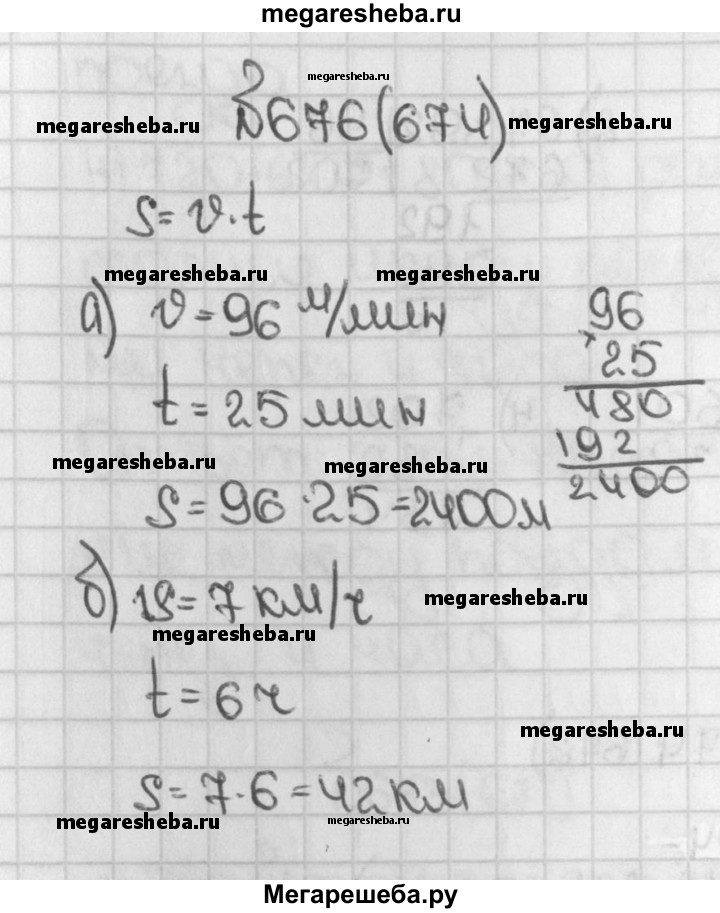 megaresheba.ru
megaresheba.ru
megaresheba.ru №676(674) megaresheba.ru
S = v · t
megaresheba.ru megaresheba.ru
а) v = 96 м/мин
96
× 25
t = 25 мин
480
192
megaresheba.ru megaresheba.ru
2400
S = 96 · 25 = 2400 м
б) v = 7 км/ч megaresheba.ru
megaresheba.ru
t = 6 ч
megaresheba.ru
S = 7 · 6 = 42 км
megaresheba.ru megaresheba.ru
Мегарешеба.ру